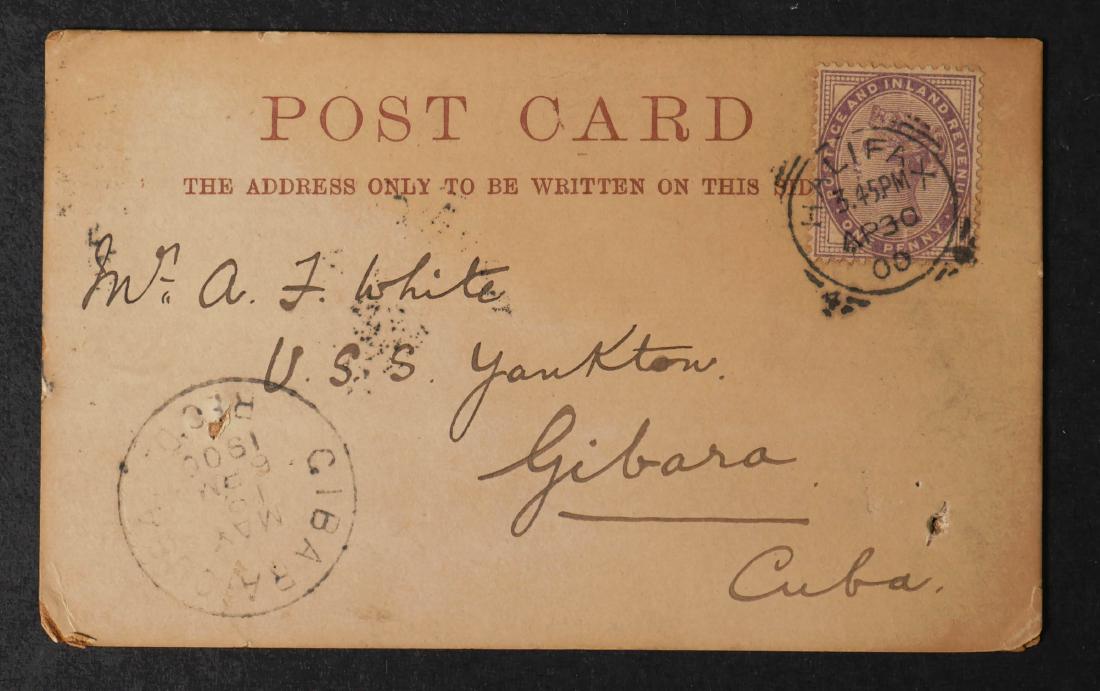 POST CARD
THE ADDRESS ONLY TO BE WRITTEN ON THIS SID
POSTAGE AND INLAND REVENUE
ONE PENNY
HALIFAX
3.45PM
AP30
00
Mr. A. F. White
U. S. S. Yankton.
Gibara
Cuba.
GIBARA, CUBA
REC'D.
MAY
1900